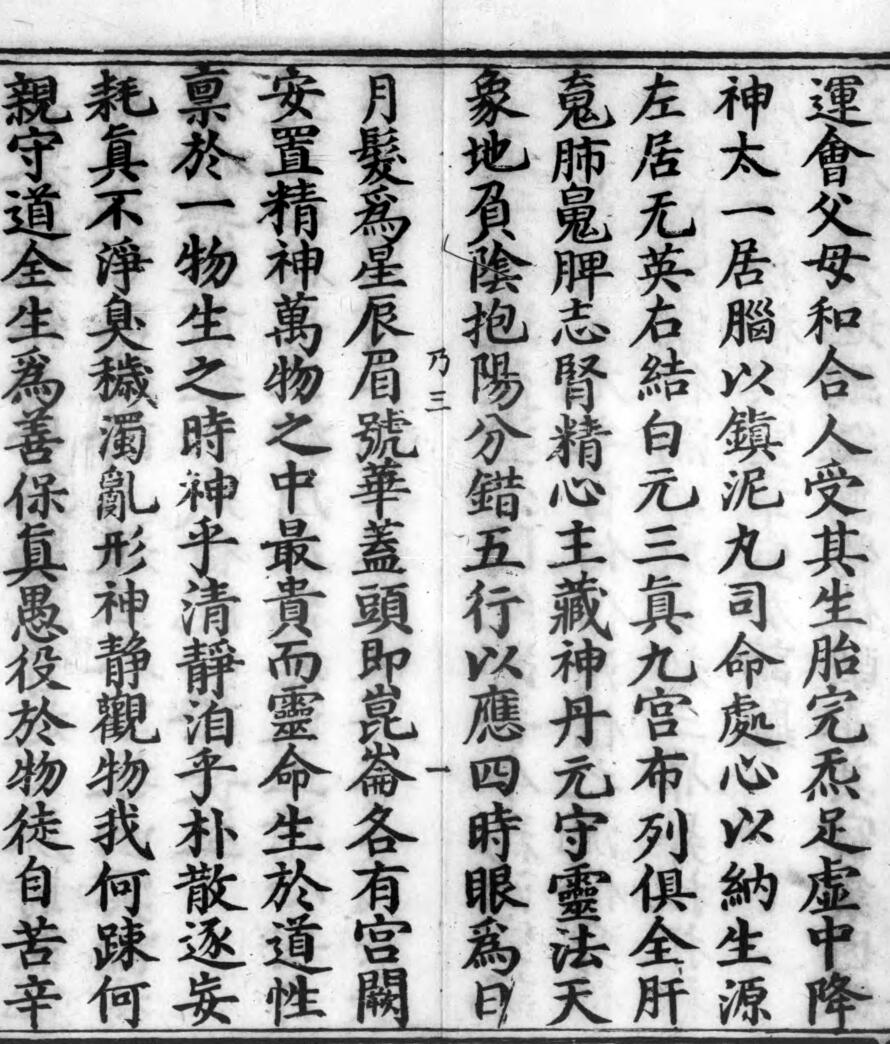 運會父母和合人受其生胎完炁足虛中降
神太一居腦以鎮泥丸司命處心以納生源
左居无英右結白元三真九宮布列俱全肝
䰟肺魄脾志腎精心主藏神丹元守靈法天
象地負陰抱陽分錯五行以應四時眼為日
乃三
一
月髮為星辰眉號華蓋頭即崑崙各有宮闕
安置精神萬物之中最貴而靈命生於道性
禀於一物生之時神乎清靜泊乎朴散逐妄
耗真不淨臭穢濁亂形神静觀物我何踈何
親守道全生為善保真愚役於物徒自苦辛